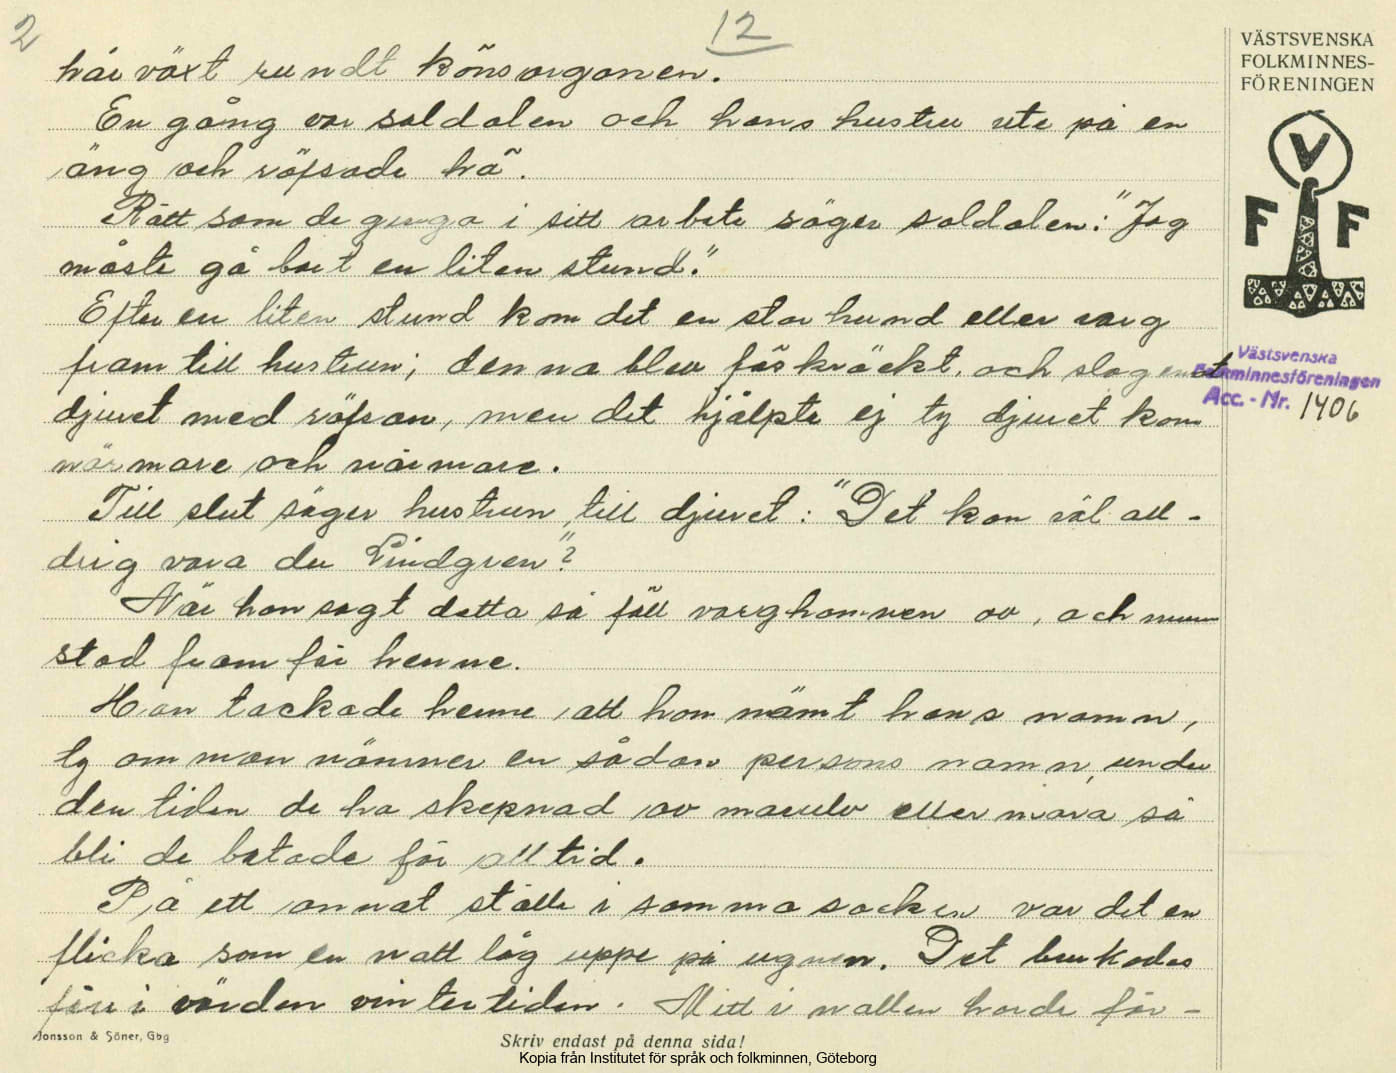 2
12
hårväxt rundt könsorganen.
En gång var soldaten och hans hustru ute på en
äng och räfsade hö.
Rätt som de gingo i sitt arbete säger soldaten: "Jag
måste gå bort en liten stund."
Efter en liten stund kom det en stor hund eller varg
fram till hustrun; denna blev förskräckt, och slog emot
djuret med räfsan, men det hjälpte ej ty djuret kom
närmare och närmare.
Till slut säger hustrun till djuret: "Det kan väl all-
drig vara du Lindgren"?
När hon sagt detta så föll varghamnen av, och mannen
stod framför henne.
Han tackade henne att hon nämt hans namn,
ty om man nämner en sådan persons namn, under
den tiden de ha skepnad av maeulv eller mara så
bli de botade för alltid.
På ett annat ställe i samma socken var det en
flicka som en natt låg uppe på ugnen. Det brukades
förr i värden vintertiden. Mitt i natten horde för-
VÄSTSVENSKA
FOLKMINNES-
FÖRENINGEN
V
F F
Västsvenska
Folkminnesföreningen
Acc. - Nr. 1406
Jonsson & Söner, Gbg
Skriv endast på denna sida!
Kopia från Institutet för språk och folkminnen, Göteborg